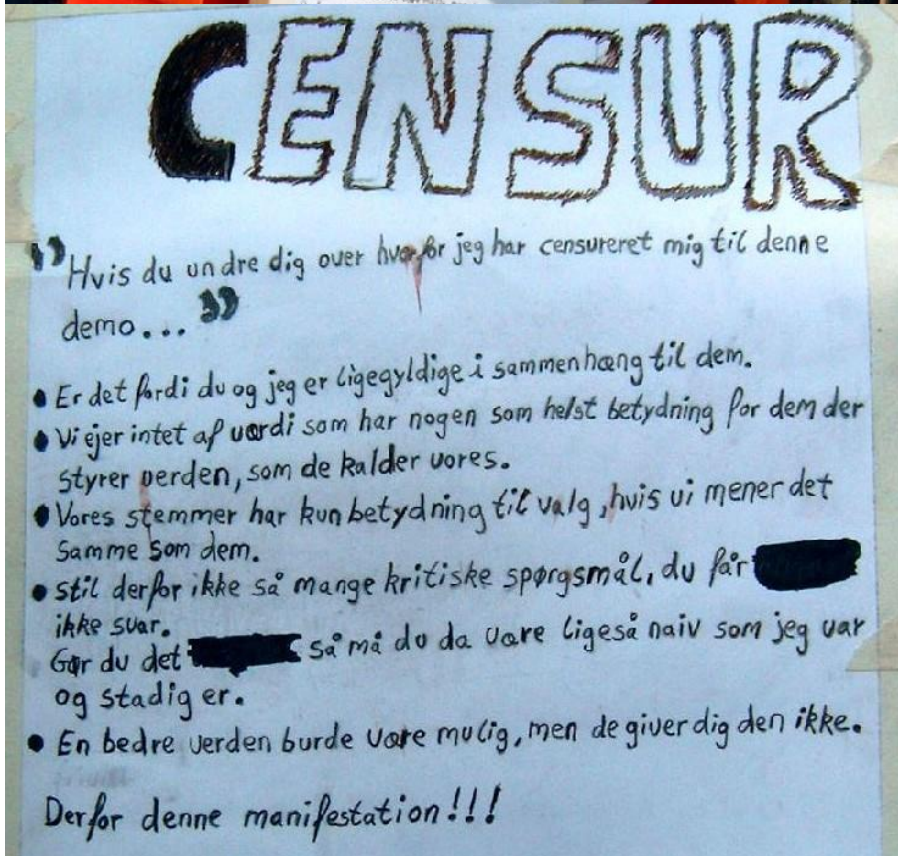 CENSUR
"Hvis du undre dig over hvorfor jeg har censureret mig til denne
demo... "
• Er det fordi du og jeg er ligegyldige i sammenhæng til dem.
• Vi ejer intet af værdi som har nogen som helst betydning for dem der
styrer verden, som de kalder vores.
• Vores stemmer har kun betydning til valg, hvis vi mener det
samme som dem.
• Stil derfor ikke så mange kritiske spørgsmål, du får
ikke svar.
Gør du det så må du da være ligeså naiv som jeg var
og stadig er.
• En bedre verden burde være mulig, men de giver dig den ikke.
Derfor denne manifestation!!!